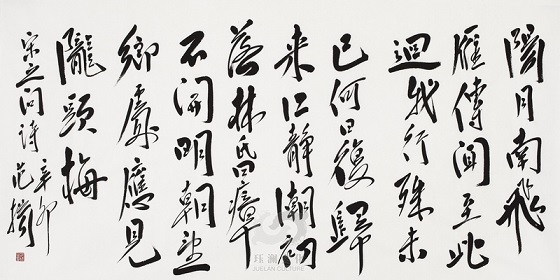 陽月南飛
雁傳聞至此
迴我行殊未
已何日復歸
来江静潮初
落林昏瘴
不開明朝望
鄉處應見
隴頭梅
宋之问詩
辛卯
范
JUELAN CULTURE